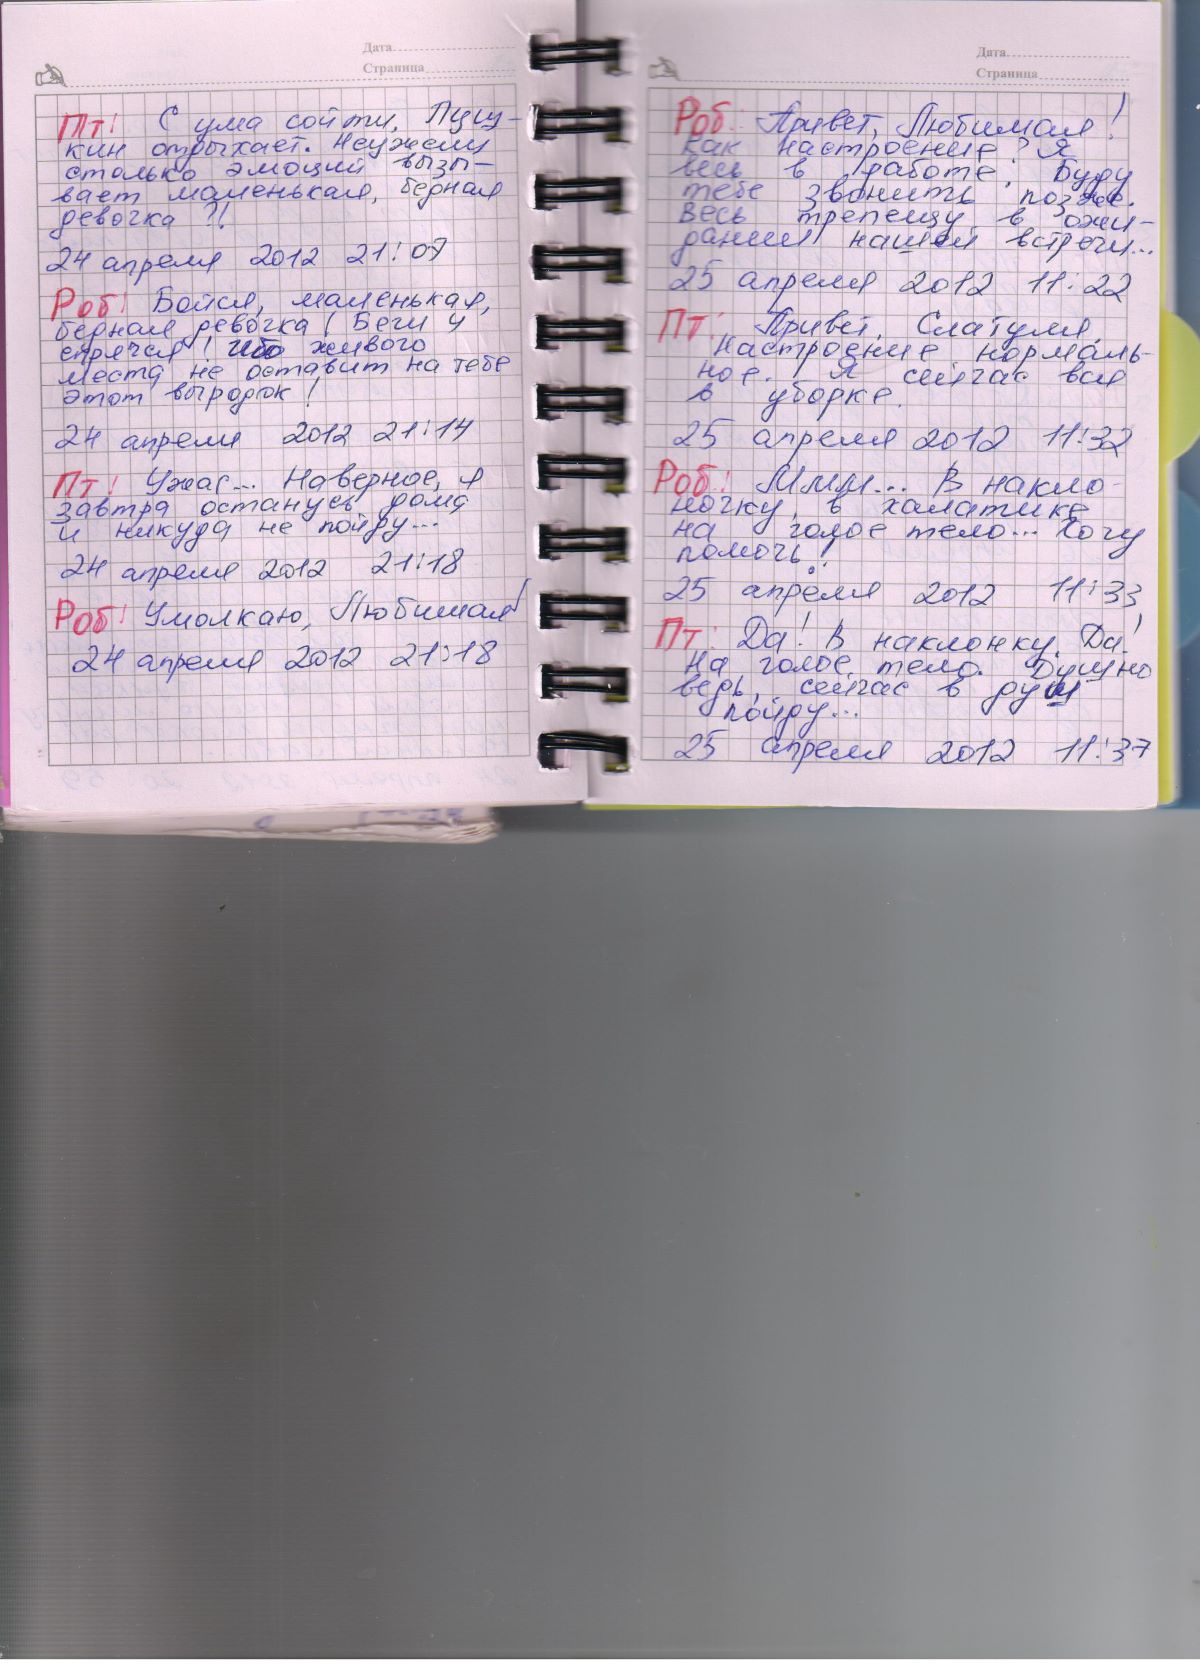 Дата
Страница
Пт: С ума сойти, Пушу-
кин отдыхает. Неужели
столько эмоций вызы-
вает маленькая, бедная
девочка?!
24 апреля 2012 21:09
Роб: Бойся, маленькая,
бедная девочка! Беги и
спрячся! ибо живого
места не оставит на тебе
этот выродок!
24 апреля 2012 21:14
Пт: Ужас... Наверное, я
завтра останусь дома
и никуда не пойду...
24 апреля 2012 21:18
Роб: Умолкаю, Любимая!
24 апреля 2012 21:18
Дата
Страница
Роб: Привет, Любимая!
Как настроение? Я
весь в работе. Буду
тебе звонить позже.
Весь трепещу в ожи-
дании нашей встречи...
25 апреля 2012 11:22
Пт: Привет, Слатуля,
настроение нормаль-
ное. Я сейчас вся
в уборке.
25 апреля 2012 11:32
Роб: Ммм... В накло-
ночку, в халатике
на голое тело... Хочу
помочь!
25 апреля 2012 11:33
Пт: Да! В наклонку. Да!
На голое тело. Душно
ведь, сейчас в душ
пойду...
25 апреля 2012 11:37